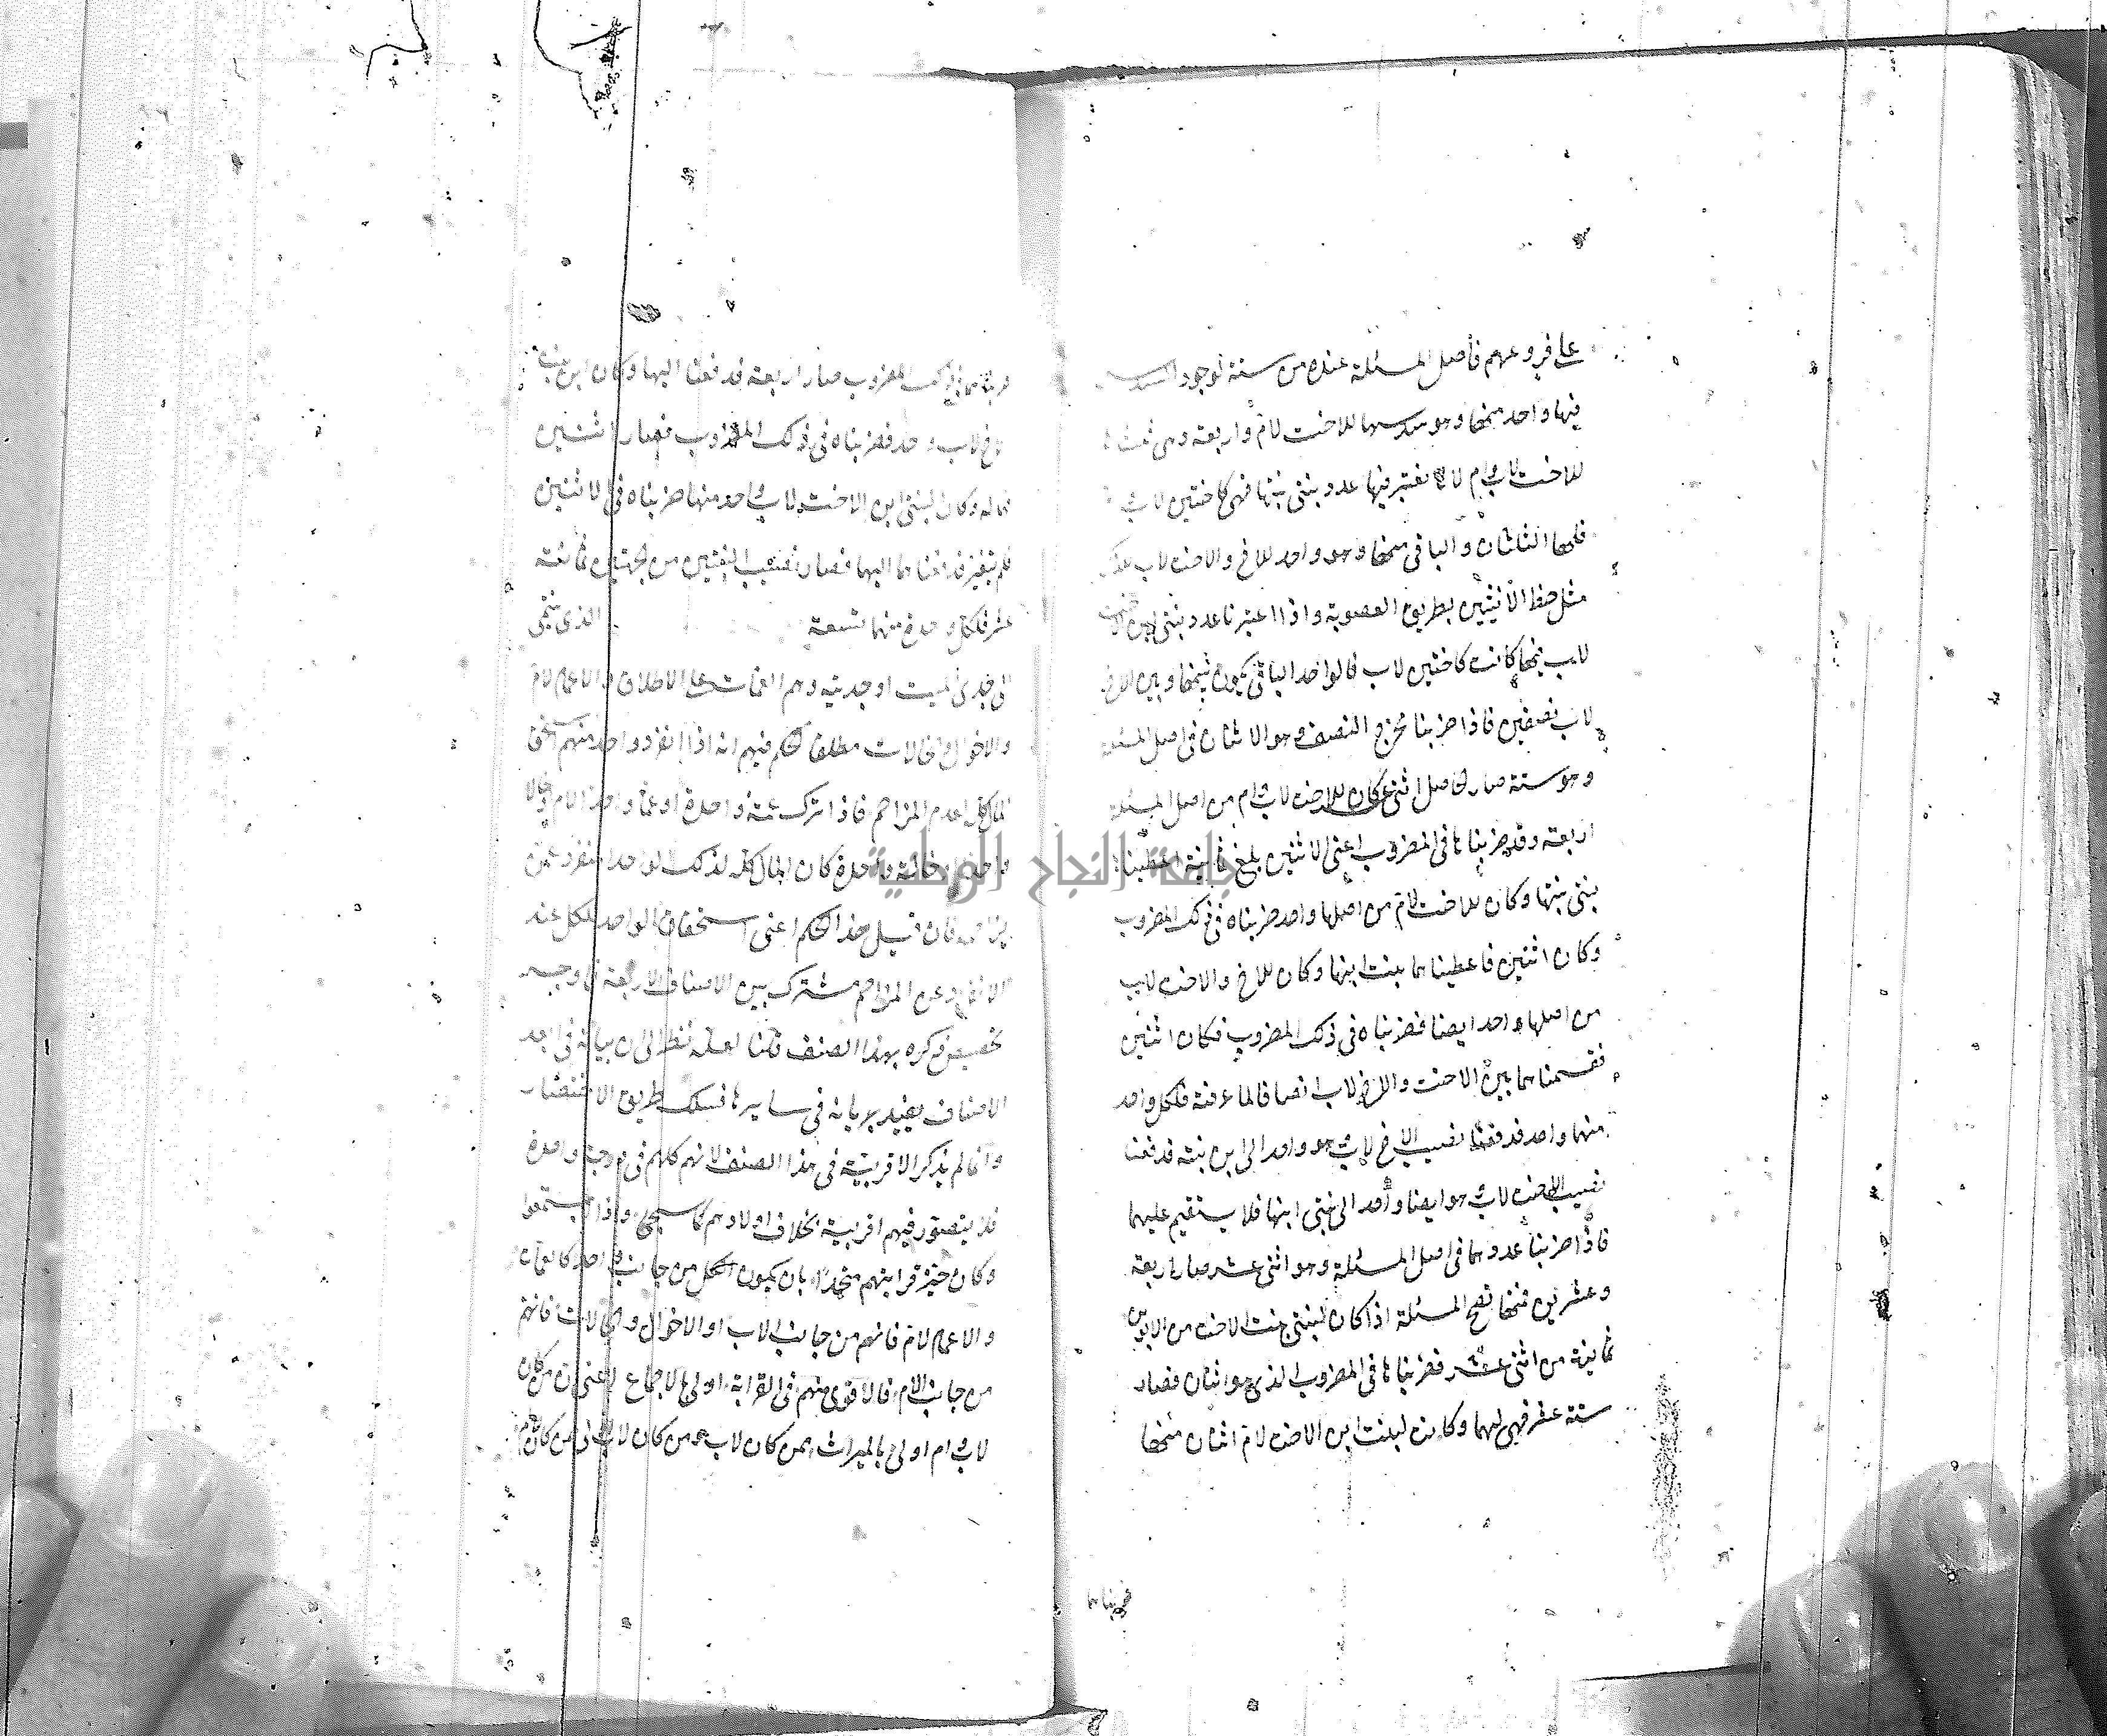 على فروعهم فأصل المسئلة عنده من ستة لوجود السدس
فيها واحد منها وهو سدسها للاخت لام واربعة وهي ثلثاها
للاخت لاب وام لانا نعتبر فيها عدد بنتي بنتها فهي كاختين لاب
فلهما الثلثان والباقي منها وهو واحد للاخ والاخت لاب للذكر
مثل حظ الانثيين بطريق العصوبة واذا اعتبرنا عدد بنتي ابن الاخت
لاب فيها كانت كاختين لاب فالواحد الباقي يكون بينها وبين الاخ
لاب نصفين فاذا ضربنا مخرج النصف وهو الاثنان في اصل المسئلة
وهو ستة صار الحاصل اثني عشر كان للاخت لاب وام من اصل المسئلة
اربعة وقد ضربناها في المضروب اعني الاثنين بلغ ثمانية اعطيناها
بنتي بنتها وكان للاخت لام من اصلها واحد ضربناه في ذلك المضروب
وكان اثنين فاعطيناهما بنت ابنها وكان للاخ والاخت لاب
من اصلها واحد ايضا فضربناه في ذلك المضروب فكان اثنين
فقسمناهما بين الاخت والاخ لاب انصافا لما عرفته فلكل واحد
منهما واحد فدفعنا نصيب الاخ لاب وهو واحد الى ابن بنته فدفعنا
نصيب الاخت لاب وهو ايضا واحد الى بنتي ابنها فلا يستقيم عليهما
فاذا ضربنا عددهما في اصل المسئلة وهو اثني عشر صار اربعة
وعشرين فمنها تصح المسئلة اذا كان لبنتي بنت الاخت من الابوين
ثمانية من اثني عشر فضربناها في المضروب الذي هو اثنان فصار
ستة عشر فهي لهما وكانت لبنت ابن الاخت لام اثنان منها
فضربناهما
ضربناهما في ذلك المضروب صار اربعة فدفعنا اليها وكان لابن بنت
الاخ لاب واحد فضربناه في ذلك المضروب فصار اثنين
فهما له وكان لبنتي ابن الاخت لاب واحد منها ضربناه في الاثنين
فلم يتغير فدفعناهما اليهما فصار نصيب البنتين من الجهتين ثمانية
عشر فلكل واحدة منهما تسعة الذي ينتمي
الى جدي الميت او جدتيه وهم العمات على الاطلاق والاعمام لام
والاخوال والخالات مطلقا الحكم فيهم انه اذا انفرد واحد منهم استحق
المال كله لعدم المزاحم فاذا ترك عمة واحدة او عما واحدا لام او خالا
واحدا او خالة واحدة كان المال كله لذلك الواحد المنفرد عمن
يزاحمه فان قيل هذا الحكم اعني استحقاق الواحد للكل عند
الانفراد عن المزاحم مشترك بين الاصناف الاربعة فما وجه
تخصيص ذكره بهذا الصنف قلنا لعله نظر الى ان بيانه في ابعد
الاصناف يفيد جريانه في سايرها فسلك طريق الاختصار
وانما لم يذكر الاقربية في هذا الصنف لانهم كلهم في درجة واحدة
فلا يتصور فيهم اقربية بخلاف اولادهم كما سيجئ واذا اجتمعوا
وكان حيز قرابتهم متحدا بان يكون الكل من جانب واحد كالعمات
والاعمام لام فانهم من جانب الاب او الاخوال والخالات فانهم
من جانب الام فالاقوى منهم في القرابة اولى بالاجماع اعني ان من كان
لاب وام اولى بالميراث ممن كان لاب ومن كان لاب اولى ممن كان لام
جامعة النجاح الوطنية